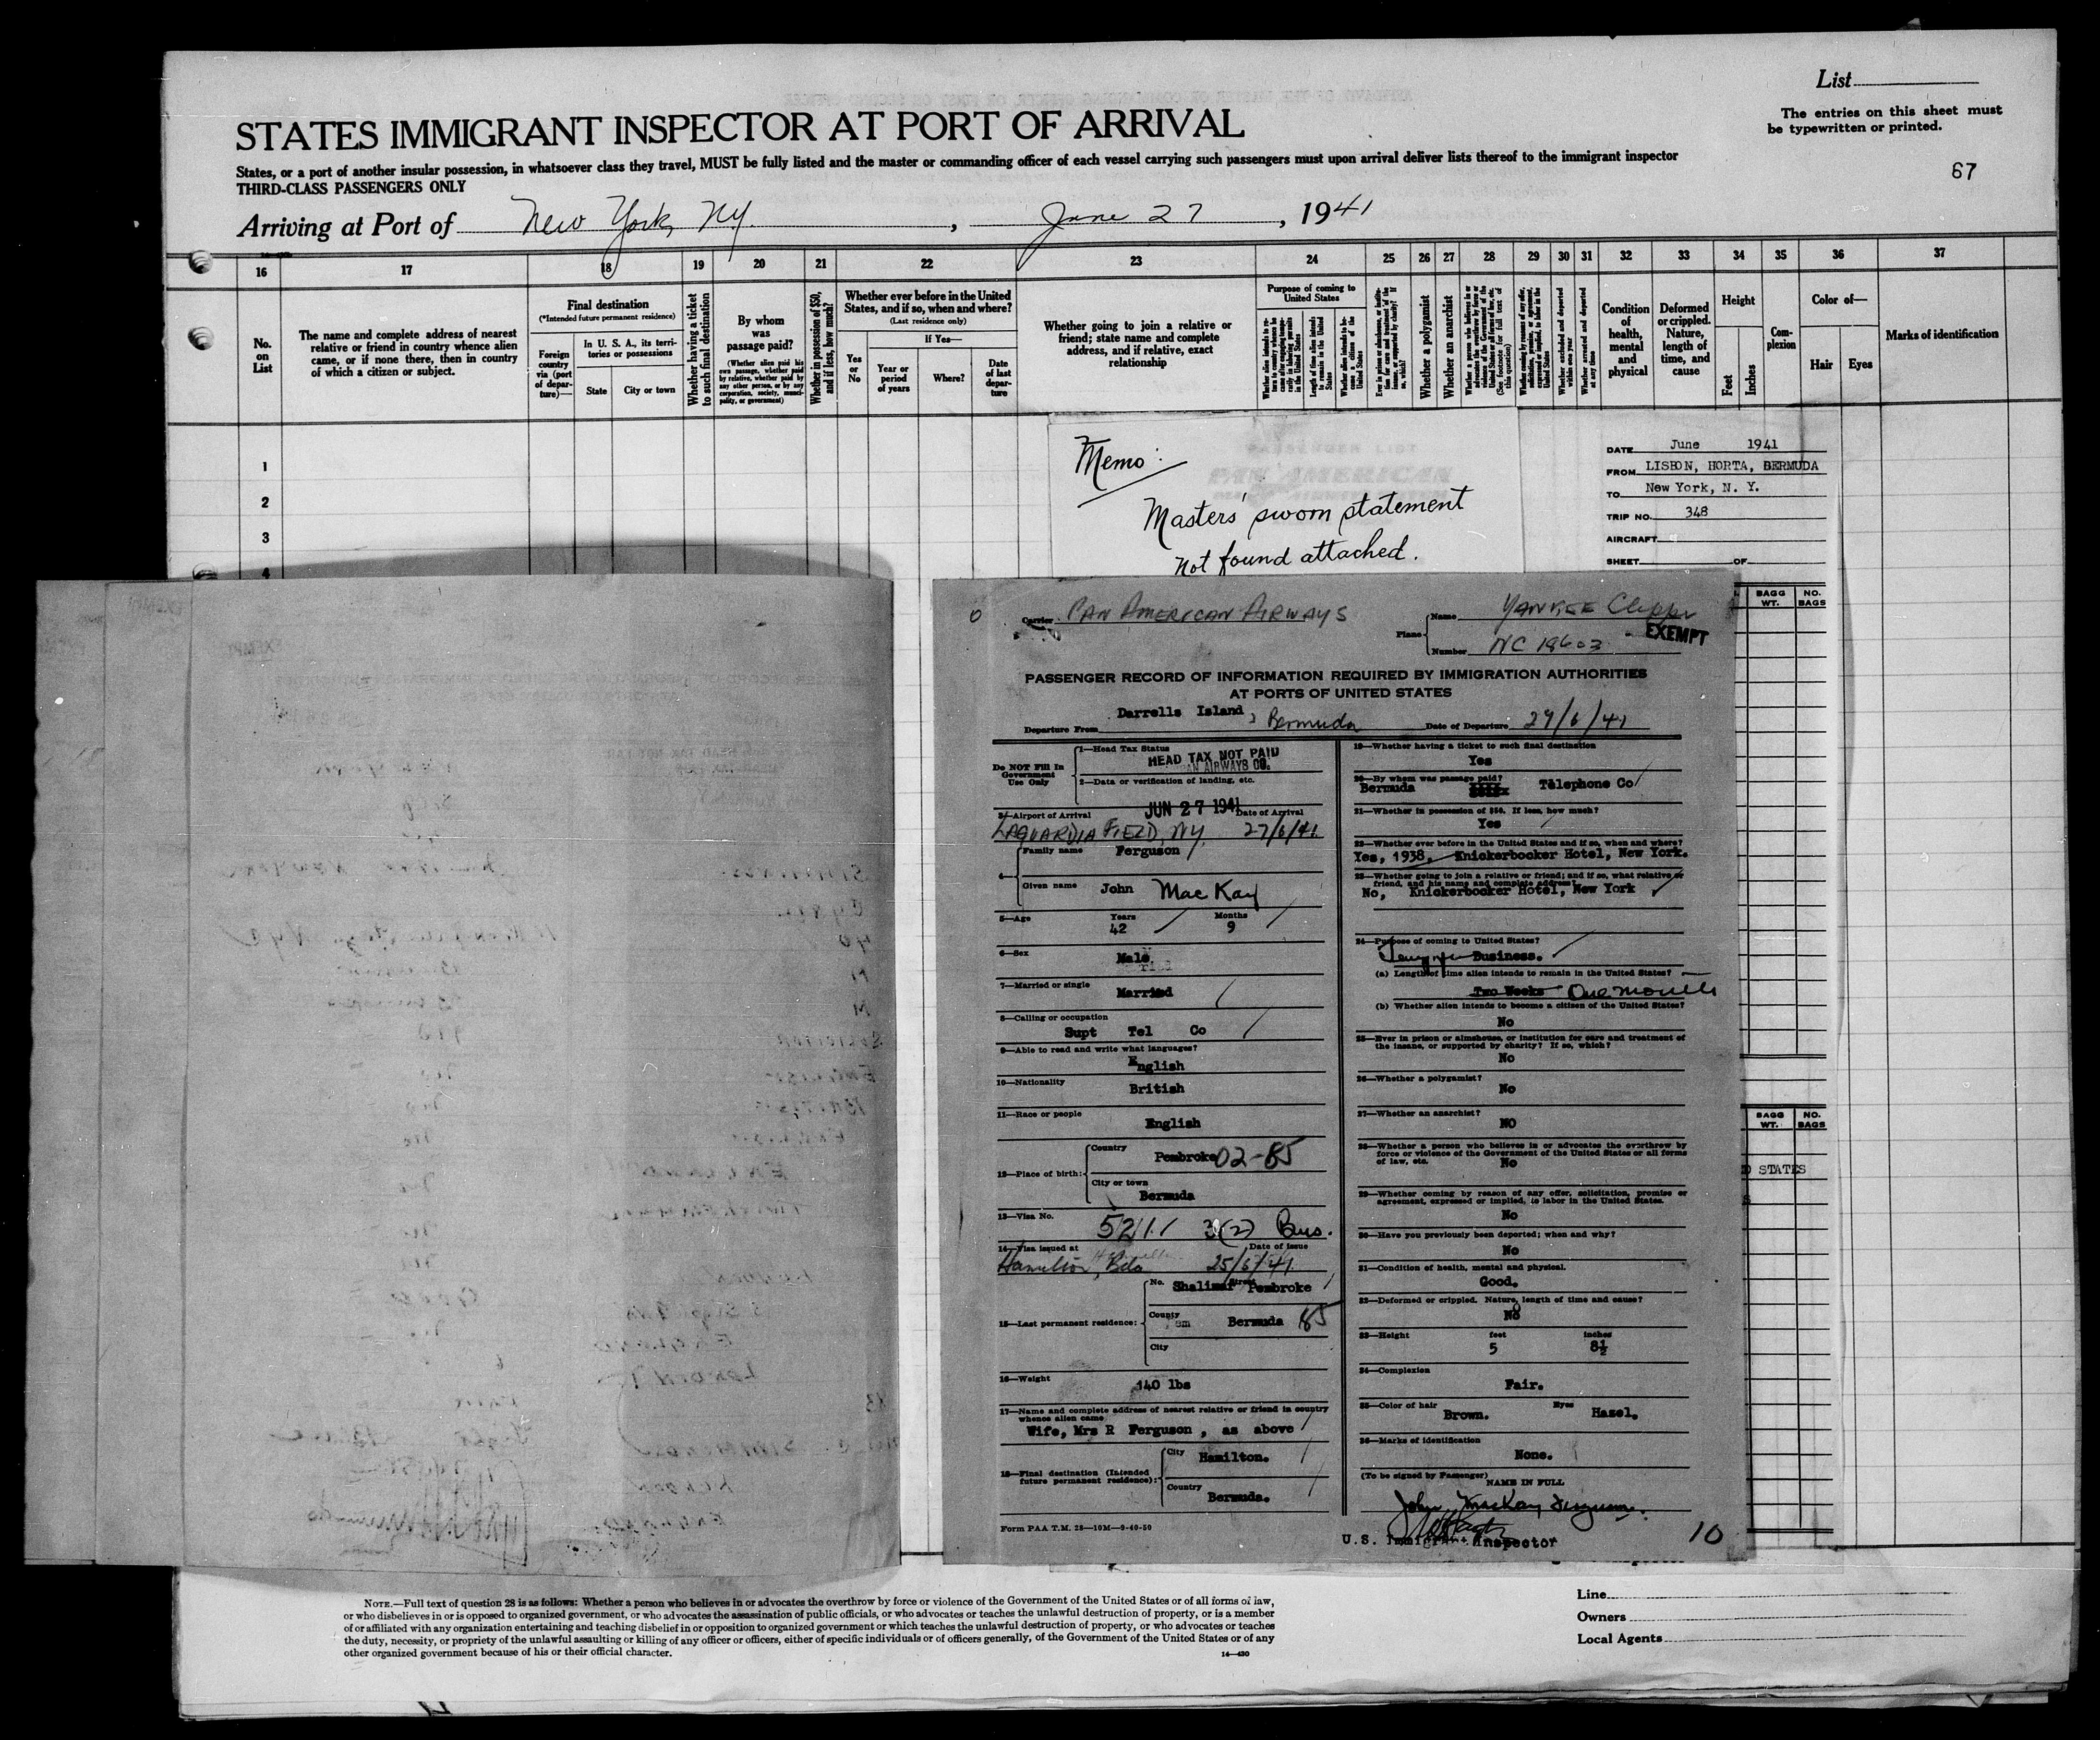 List
The entries on this sheet must
be typewritten or printed.
67
STATES IMMIGRANT INSPECTOR AT PORT OF ARRIVAL
States, or a port of another insular possession, in whatsoever class they travel, MUST be fully listed and the master or commanding officer of each vessel carrying such passengers must upon arrival deliver lists thereof to the immigrant inspector
THIRD-CLASS PASSENGERS ONLY
Arriving at Port of New York, N.Y., June 27, 1941
16 17 18 19 20 21 22 23 24 25 26 27 28 29 30 31 32 33 34 35 36 37
No. on List
The name and complete address of nearest
relative or friend in country whence alien
came, or if none there, then in country
of which a citizen or subject.
Final destination
(*Intended future permanent residence)
Foreign country via (port of departure)—
In U. S. A., its territories or possessions
State
City or town
Whether having a ticket to such final destination
By whom was passage paid?
(Whether alien paid his own passage, whether paid by relative, whether paid by any other person, or by any corporation, society, municipality, or government)
Whether in possession of $50, and if less, how much?
Whether ever before in the United
States, and if so, when and where?
(Last residence only)
Yes or No
If Yes—
Year or period of years
Where?
Date of last departure
Whether going to join a relative or
friend; state name and complete
address, and if relative, exact
relationship
Purpose of coming to
United States
Length of time alien intends to remain in the United States
Whether alien intends to become a citizen of the United States
Whether a polygamist
Whether an anarchist
Whether arrested and deported at any time
Condition of health, mental and physical
Deformed or crippled. Nature, length of time, and cause
Height
Feet
Inches
Complexion
Color of—
Hair
Eyes
Marks of identification
1
2
3
4
Memo:
Masters' sworn statement
not found attached.
DATE June 1941
FROM LISBON, HORTA, BERMUDA
TO New York, N. Y.
TRIP NO. 348
AIRCRAFT
SHEET OF
BAGG WT.
NO. BAGS
BAGG WT.
NO. BAGS
STATES
Carrier PAN AMERICAN AIRWAYS
Plane
Name YANKEE Clipper
Number NC 18603
EXEMPT
PASSENGER RECORD OF INFORMATION REQUIRED BY IMMIGRATION AUTHORITIES
AT PORTS OF UNITED STATES
Departure From Darrells Island, Bermuda Date of Departure 27/6/41
Do NOT Fill In
Government
Use Only
1—Head Tax Status
HEAD TAX NOT PAID
PAN AIRWAYS CO.
2—Data or verification of landing, etc.
JUN 27 1941
3—Airport of Arrival Date of Arrival
LAGUARDIA FIELD, NY. 27/6/41
4—
Family name Ferguson
Given name John MacKay
5—Age Years 42 Months 9
6—Sex Male
7—Married or single Married
8—Calling or occupation
Supt Tel Co
9—Able to read and write what languages?
English
10—Nationality
British
11—Race or people
English
12—Place of birth:
Country Pembroke 02-85
City or town
Bermuda
13—Visa No. 5211 3(2) Bus.
14—Visa issued at Date of issue
Hamilton, Bda 25/6/41
15—Last permanent residence:
No. Street Shalimar Pembroke
County Bermuda 85
City
16—Weight
140 lbs
17—Name and complete address of nearest relative or friend in country
whence alien came
Wife, Mrs R Ferguson, as above
18—Final destination (Intended
future permanent residence):
City Hamilton.
Country Bermuda.
Form PAA T.M. 28—10M—9-40-50
19—Whether having a ticket to such final destination
Yes
20—By whom was passage paid?
Bermuda Telephone Co
21—Whether in possession of $50. If less, how much?
Yes
22—Whether ever before in the United States and if so, when and where?
Yes, 1938, Knickerbocker Hotel, New York.
23—Whether going to join a relative or friend; and if so, what relative or
friend, and his name and complete address?
No, Knickerbocker Hotel, New York
24—Purpose of coming to United States?
Business.
(a) Length of time alien intends to remain in the United States?
Two Weeks One month
(b) Whether alien intends to become a citizen of the United States?
No
25—Ever in prison or almshouse, or institution for care and treatment of
the insane, or supported by charity? If so, which?
No
26—Whether a polygamist?
No
27—Whether an anarchist?
NO
28—Whether a person who believes in or advocates the overthrow by
force or violence of the Government of the United States or all forms
of law, etc.
No
29—Whether coming by reason of any offer, solicitation, promise or
agreement, expressed or implied, to labor in the United States.
No
30—Have you previously been deported; when and why?
No
31—Condition of health, mental and physical.
Good.
32—Deformed or crippled. Nature, length of time and cause?
No
33—Height feet inches
5 8½
34—Complexion
Fair.
35—Color of hair Eyes
Brown. Hazel.
36—Marks of identification
None.
(To be signed by Passenger)
NAME IN FULL
John MacKay Ferguson.
U.S. Immigrant Inspector
10
NOTE.—Full text of question 28 is as follows: Whether a person who believes in or advocates the overthrow by force or violence of the Government of the United States or of all forms of law,
or who disbelieves in or is opposed to organized government, or who advocates the assassination of public officials, or who advocates or teaches the unlawful destruction of property, or is a member
of or affiliated with any organization entertaining and teaching disbelief in or opposition to organized government or which teaches the unlawful destruction of property, or who advocates or teaches
the duty, necessity, or propriety of the unlawful assaulting or killing of any officer or officers, either of specific individuals or of officers generally, of the Government of the United States or of any
other organized government because of his or their official character.
14—430
Line
Owners
Local Agents